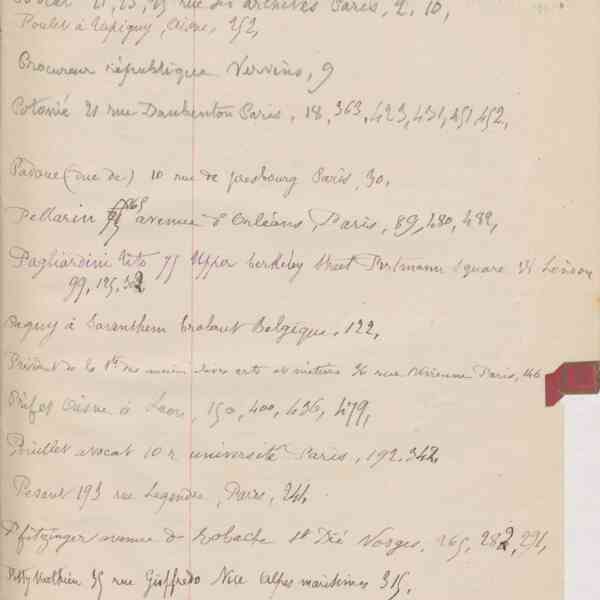 21, 23, 25 rue des archives Paris, 2, 10,
Poulet à Papigny, Aisne, 252,
Procureur république Vervins, 9
Potonié 21 rue Daubenton Paris, 18, 363, 423, 431, 451, 452,
Padoue (duc de) 10 rue de Paris, 30,
Pellarin avenue d'Orléans, Paris, 89, 480, 482,
Pagliardini Tito 75 Upper Berkeley Street Portmann Square W London
99, 125, 302
à Brabant Belgique, 122,
Président de la arts et métiers rue Vivienne Paris, 146
Préfet Aisne à Laon, 150, 400, 436, 479,
Pouillet avocat 10 r université Paris, 192, 342,
Pesant 193 rue Legendre, Paris, 241,
Pfitzinger avenue de Robache St Dié Vosges, 265, 282, 291,
Mathieu 35 rue Gioffredo Nice Alpes maritimes 315,